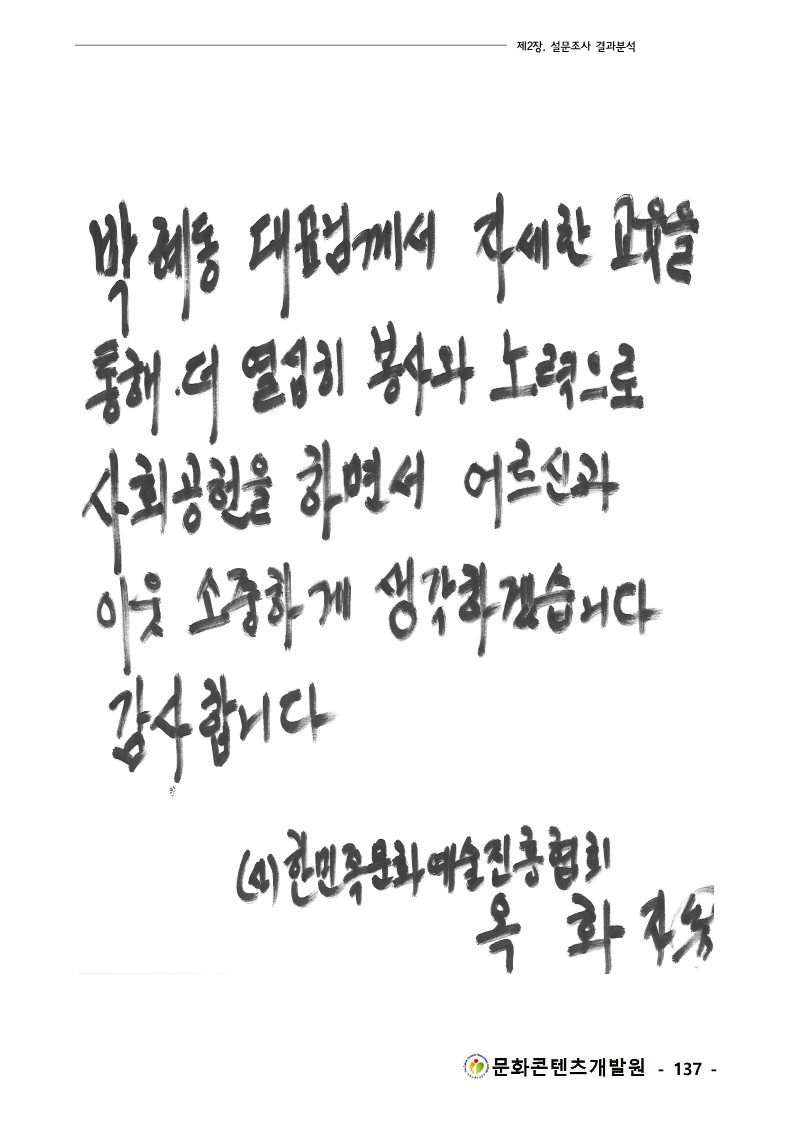 제2장. 설문조사 결과분석
박혜동 대표님께서 자세한 교육을
통해 더 열섬히 봉사와 노력으로
사회공헌을 하면서 어르신과
이웃 소중하게 생각하겠습니다
감사합니다
(사)한민족문화예술진흥협회
옥 화 자
문화콘텐츠개발원 - 137 -